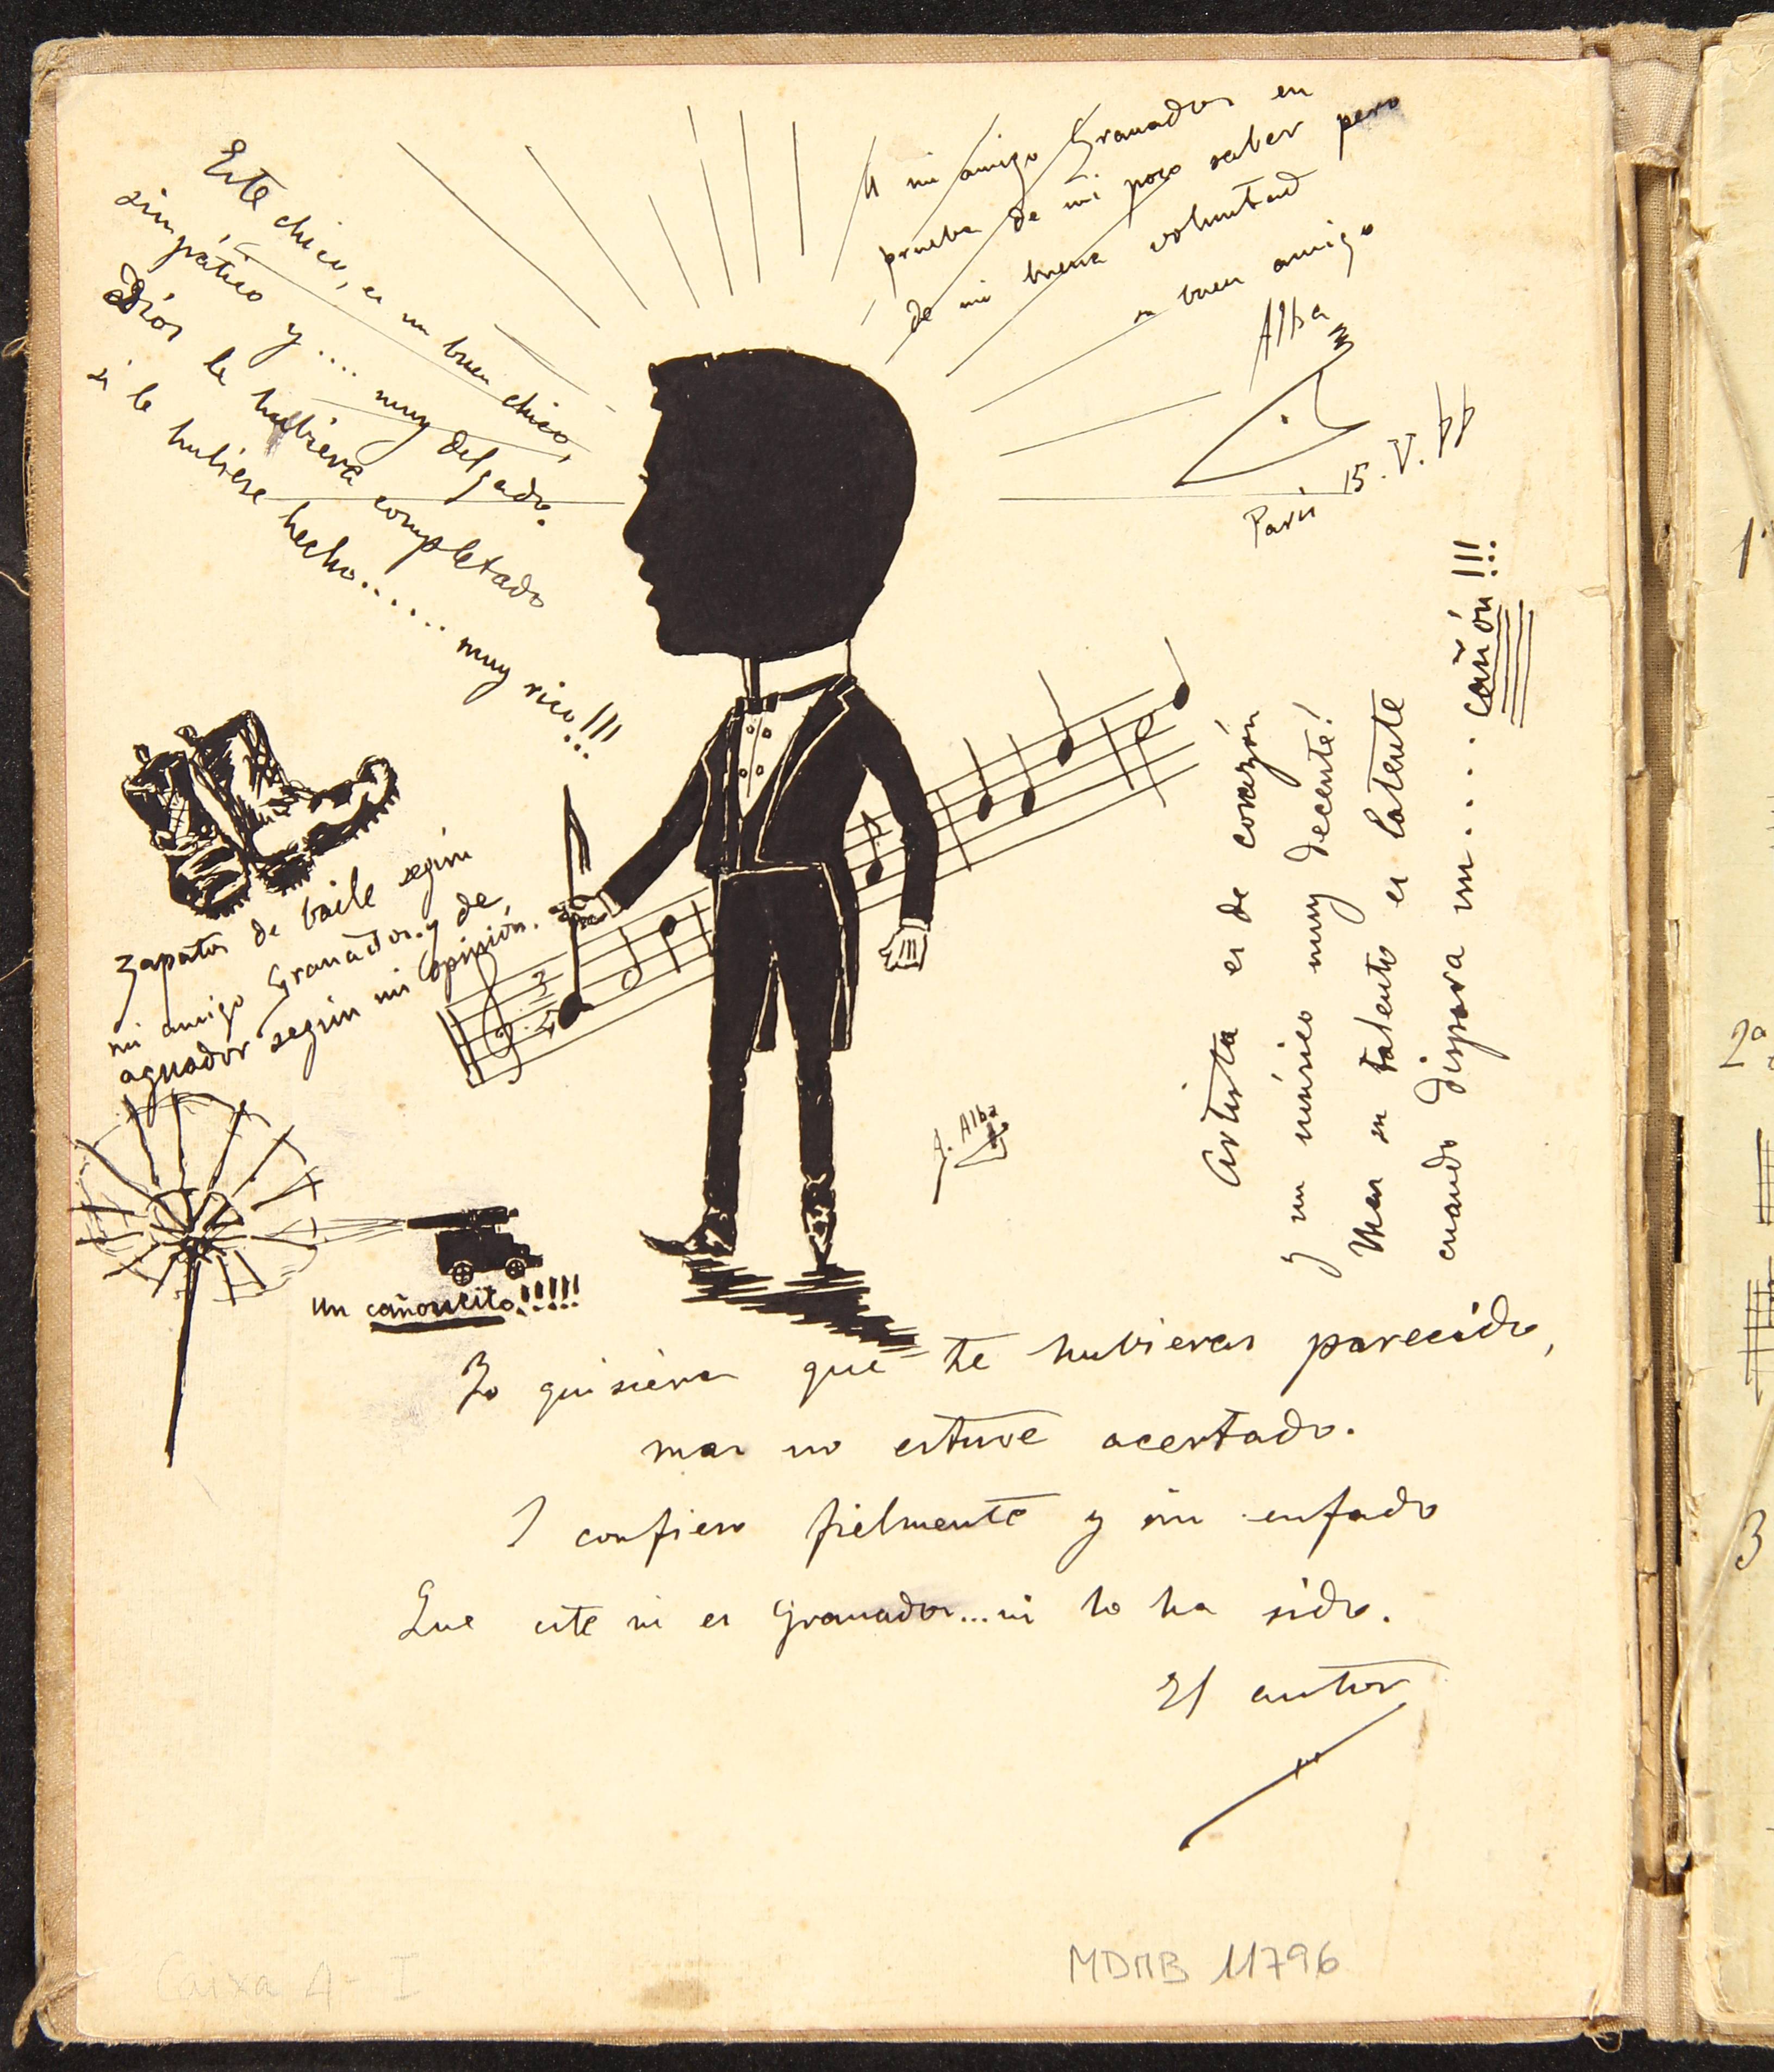 Este chico, es un buen chico,
simpático y .... muy delgado.
Diós le hubiera completado
si le hubiese hecho...... muy rico!!!
A mi amigo Granados en
prueba de mi poco saber pero
de mi buena voluntad
su buen amigo
Alba
Paris 15.V.88
zapatos de baile según
mi amigo Granados. y de
aguador según mi opinión.
Artista es de corazón
y un músico muy decente!
Mas su talento es latente
cuando dispara un..... cañón!!!
A. Alba
un cañoncito!!!!!
Yo quisiera que te hubieras parecido,
mas no estuve acertado.
I confieso fielmente y sin enfado
Que este ni es Granados...ni lo ha sido.
El autor
Caixa A-I
MDMB 11796
1ª
2ª
3